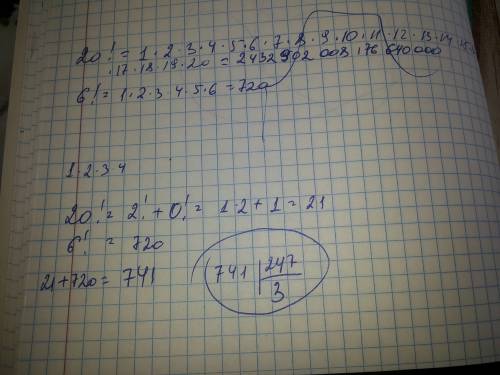 20! = 1·2·3·4·5·6·7·8·9·10·11·12·13·14·15·
·17·18·19·20 = 2432902 008 176 640 000
6! = 1·2·3·4·5·6 = 720
1·2·3·4
20! = 2! + 0! = 1·2 + 1 = 21
6! = 720
21+720= 741
741 | 247
3